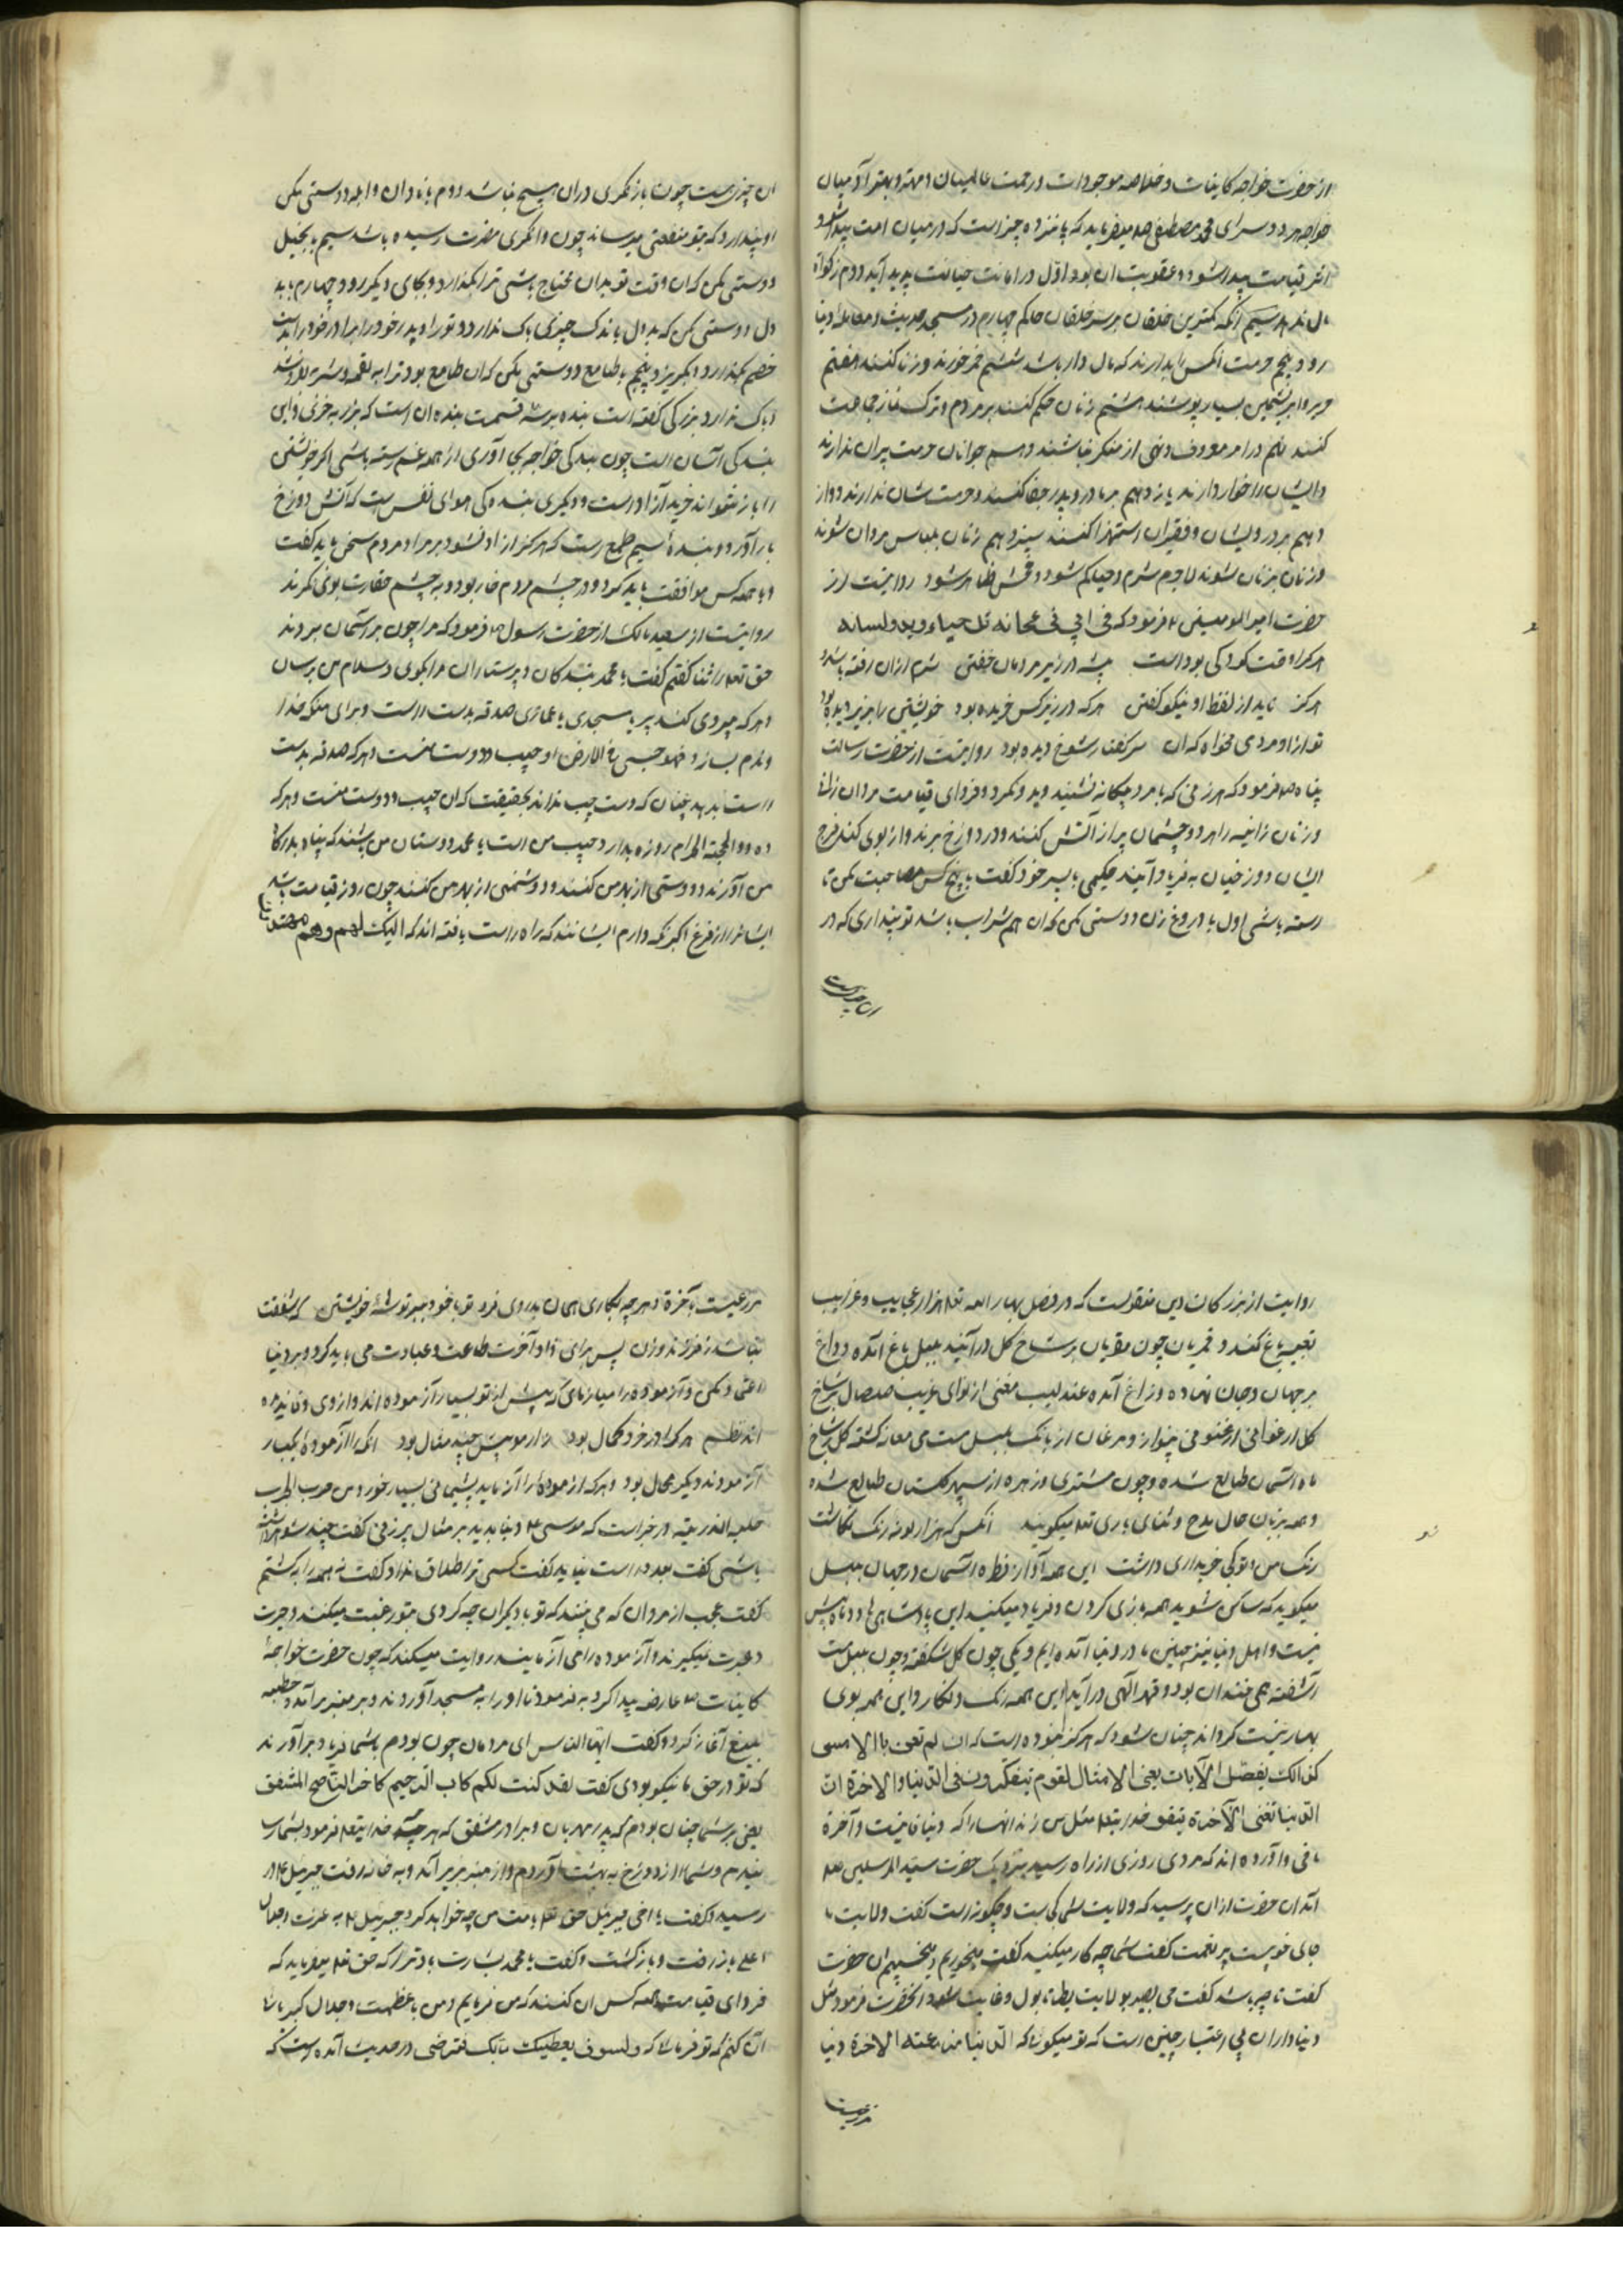 از حضرت خواجه کاینات و خلاصه موجودات و رحمت عالمیان و مهتر و بهتر آدمیان
خواجه هر دو سرای محمد مصطفی صلم میفرماید که پانزده چیز است که در میان امت پیدا شود
اثر قیامت پیدا شود و عقوبت ان بود اول در امانت خیانت پدید آید دوم زکواة
مال ندهند سیم آنکه کمترین خلقان بر سر خلقان حاکم چهارم در مسجد حدیث و معامله دنیا
رود پنجم حرمت انکس را بدارند که مال دار باشد ششم خمر خورند و زنا کنند هفتم
حریر و ابریشمین بسیار پوشند هشتم زنان حکم کنند بر مردم و ترک نماز جماعت
کنند نهم در امر معروف و نهی از منکر نباشند دهم جوانان حرمت پیران ندارند
و ایشان را خوار دارند یازدهم بر مادر و پدر جفا کنند و حرمت شان ندارند دواز
دهم بر درویشان و فقیران استهزا کنند سیزدهم زنان بلباس مردان شوند
و زنان بزنان شوند لاجرم شرم و حیا کم شود و فحش ظاهر شود روایتست از
حضرت امیر المومنین ع فرمود که
هر کرا وقت کودکی بوداست پشه در زیر مردمان خفتن شرم ازان رفته باشد و
هرکز ناید از لفظ او نیکو گفتن هر که در زیر کس خزیده بود خویشتن را بزیر دیده بود
تو ازو مردی مخواه که ان سر کفتار شوخ دیده بود روایتست از حضرت رسالت
پناه صلم فرمود که هر زنی که با مرد بیکانه نشیند و بد و نگرد فردای قیامت مردان زانی
و زنان زانیه را هر دو چشمان پر از آتش کنند و در دوزخ برند و از بوی گند فرج
ایشان دوزخیان به فریاد آیند حکیمی با پسر خود گفت با پنج کس مصاحبت مکن تا
رسته باشی اول با دروغ زن دوستی مکن که ان هم سراب باشد تو پنداری که در
ان چیزیست
ان چیزیست چون باز نگری دران هیچ نباشد دوم با نادان و ابله دوستی مکن
او پندارد که بتو منفعتی میرساند چون وانگری مضرت رسیده باشد سیم با بخیل
دوستی مکن که ان وقت تو بدان محتاج باشی ترا بگذارد و بجای دیگر رود چهارم با بد
دل دوستی مکن که بد دل باندک چیزی باک ندارد و تو را و پدر خود را برادر خود را بدست
خصم بگذارد و بگریزد پنجم با طامع دوستی مکن که ان طامع بود ترا به لقمه و شربه بفروشد
و باک ندارد بزرکی گفته است بنده بر سه قسمت بنده ان است که بزر به خری و این
بندکی آسان است چون بندکی خواجه بجای آوری از همه غم رسته باشی اکر خویشتن
را باز نتواند خرید آزاد است و دیکری بندکی هوای نفس است که آتش دوزخ
بار آورد و بندهٔ سیم طمع است که هرکز ازاد نشود بر مراد مردم سخن باید گفت
و با همه کس موافقت باید کرد و در چشم مردم خار بود و به چشم حقارت بوی نگرند
روایتست از سعید مالک از حضرت رسول ص فرمود که مرا چون بر آسمان بردند
حق تعالی را ثنا گفتم گفت یا محمد بندکان و پرستاران مرا بکوی و سلام من برسان
و هر که پیروی کند پر یا مسجدی یا عمازی صدقه بدست راست و برای ملکه خدا
و لارم بسازد فهو حبیبی فی الارض او حبیب و دوست منست و هر که صدقه بدست
راست بدهد چنان که دست چپ نداند بحقیقت که ان حبیب و دوست منست و هر که
ده ذوالحجة الحرام روزه بدارد حبیب من است یا محمد دوستان من باشند که پناه بدرکاه
من آورند و دوستی از بهر من کنند و دشمنی از بهر من کنند چون روز قیامت باشد
ایشانرا از فزع اکبر نگه دارم ایشانند که راه راست یافته اند که اولئک لهم وهم مهتدون
روایت از بزرگان دین منقولست که در فصل بهار الله تعالی هزار عجایب و غرایب
تعبیه باغ کند و قمریان چون مقریان بر شاخ گل درآیند بلبل باغ آمده و داغ
بر جهان و جان نهاده و زاغ آمده عندلیب مغنی از نوای غریب صلصال بر شاخ
گل ارغوانی ارغنونی نوازد و مرغان از بانک بلبل مست می معانه گشته گل بر شاخ
ماه آسمان طالع شده و چون مشتری و زهره از سپهر گلستان طالع شده
و همه بزبان حال مدح و ثنای باری تعالی میگویند انکس که هزار لونه رنک نگاشت
رنک من و تو کی خریداری داشت این همه آواز فطره اسمان و در جهان بلبل
میگوید که ساکن شوید همه بازی کردن و فریاد میکنید این پادشاهی تا دو ماه بیش
نیست و اهل دنیا نیز چنین ما در دنیا آمده ایم و یکی چون گل شکفته و چون بلبل مست
آشفته همی چندان بود و قهر الهی درآید این همه رنک و نگار و این همه بوی
بهار نیست گرداند چنان شود که هرکز نبوده است کان لم تغن بالامس
کذالک نفصل الآیات یعنی الامثال لقوم یتفکرون فی الدنیا والاخرة ان
الدنیا تفنی الآخرة یبقی خدای تعالی مثل من زند انها را که دنیا فانیست و آخرة
باقی و آورده اند که مردی روزی از راه رسید بنزدیک حضرت سید المرسلین صلعم
آمد ان حضرت ازان پرسید که ولایت شما کی بست و چکونه است گفت ولایت ما
جای خوبیست پر نعمت گفت شما چه کار میکنید گفت میخوریم و میخسپیم ان حضرت
گفت تا چه باشد گفت می بصیر بولایت یطنا بول و غایت شود انحضرت فرمود مثل
دنیا داران بی اعتبار چنین است که تو میکویی که الدنیا مزرعته الاخرة دنیا
مزرعیست
مزرعیست بآخرة و هر چه بکاری همان بدروی فرد تو با خود ببر توشهٔ خویشتن که شفقت
نباشد ز فرزند و زن پس برای زاد آخرت طاعت و عبادت می باید کرد و بر دنیا
اعتماد مکن و آزموده را میازمای که پیش از تو بسیار آزموده اند و از وی وفا ندیده
اند نظم هر کرا در خرد کمال بود زار مویش چنبه مثال بود انکه را آزمودهٔ یکبار
آزمودنه دیکر محال بود و هر که ازموده را آزماید پشیمانی بسیار خورد من جرب المجرب
حلت به الندامته در خبر است که موسی ع دنیا بدید بر مثال پیر زنی گفت چند شوهر داشته
باشی گفت بعدد راست نیاید گفت کسی ترا طلاق نداد گفت نه همه را بکشتم
گفت عجب از مردان که می بینند که تو با دیگران چه کردی بتو رغبت میکنند و حیرت
و عبرت نمیگیرند و آزموده را می آزمایند روایت میکنند که چون حضرت خواجهٔ
کاینات صلم عارضه پیدا کرد به فرمود تا او را به مسجد آوردند و بر منبر برآمد و خطبه
بلیغ آغاز کرد و گفت ایها الناس ای مردمان چون بودم با شما فریاد برآوردند
که تو در حق ما نیکو بودی گفت لقد کنت لکم کاب الرحیم کاخ الناصح المشفق
یعنی بر شما چنان بودم که پدر مهربان و برادر مشفق که هر چه خدایتعالی فرمود بشما رسا
نیدم و شما را از دوزخ به بهشت آوردم و از منبر بزیر آمد و به خانه رفت جبرئیل ع در
رسید و گفت یا اخی جبرئیل حق تعالی با امت من چه خواهد کرد جبرئیل ع به عزت
اعلی باز رفت و باز گشت و گفت یا محمد بشارت باد ترا که حق تعالی میفرماید که
فردای قیامت همه کس ان کنند که من فرمایم و من با عظمت و جلال کبریا
آن کنم که تو فرمائی که ولسوف یعطیک ربک فترضی و در حدیث آمده است که